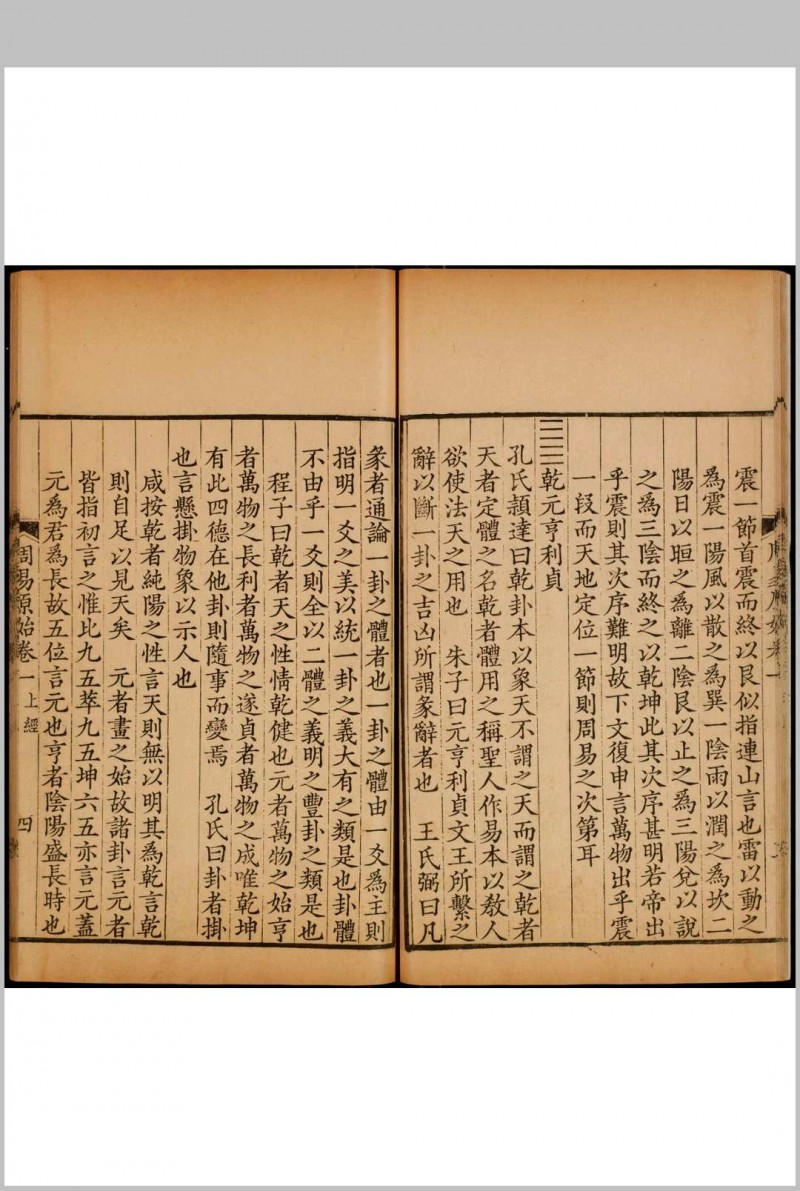 震一節首震而終以艮似指連山言也雷以動之
為震一陽風以散之為巽一陰雨以潤之為坎二
陽日以晅之為離二陰艮以止之為三陽兌以說
之為三陰而終之以乾坤此其次序甚明若帝出
乎震則其次序難明故下文復申言萬物出乎震
一段而天地定位一節則周易之次第耳
乾元亨利貞
孔氏頴達曰乾卦本以象天不謂之天而謂之乾者
天者定體之名乾者體用之稱聖人作易本以教人
欲使法天之用也 朱子曰元亨利貞文王所繫之
辭以斷一卦之吉凶所謂彖辭者也 王氏弼曰凡
彖者通論一卦之體者也一卦之體由一爻為主則
指明一爻之美以統一卦之義大有之類是也卦體
不由乎一爻則全以二體之義明之豐卦之類是也
程子曰乾者天之性情乾健也元者萬物之始亨
者萬物之長利者萬物之遂貞者萬物之成唯乾坤
有此四德在他卦則隨事而變焉 孔氏曰卦者掛
也言懸掛物象以示人也
咸按乾者純陽之性言天則無以明其為乾言乾
則自足以見天矣 元者畫之始故諸卦言元者
皆指初言之惟比九五萃九五坤六五亦言元蓋
元為君為長故五位言元也亨者陰陽盛長時也
周易原始卷一上經 四